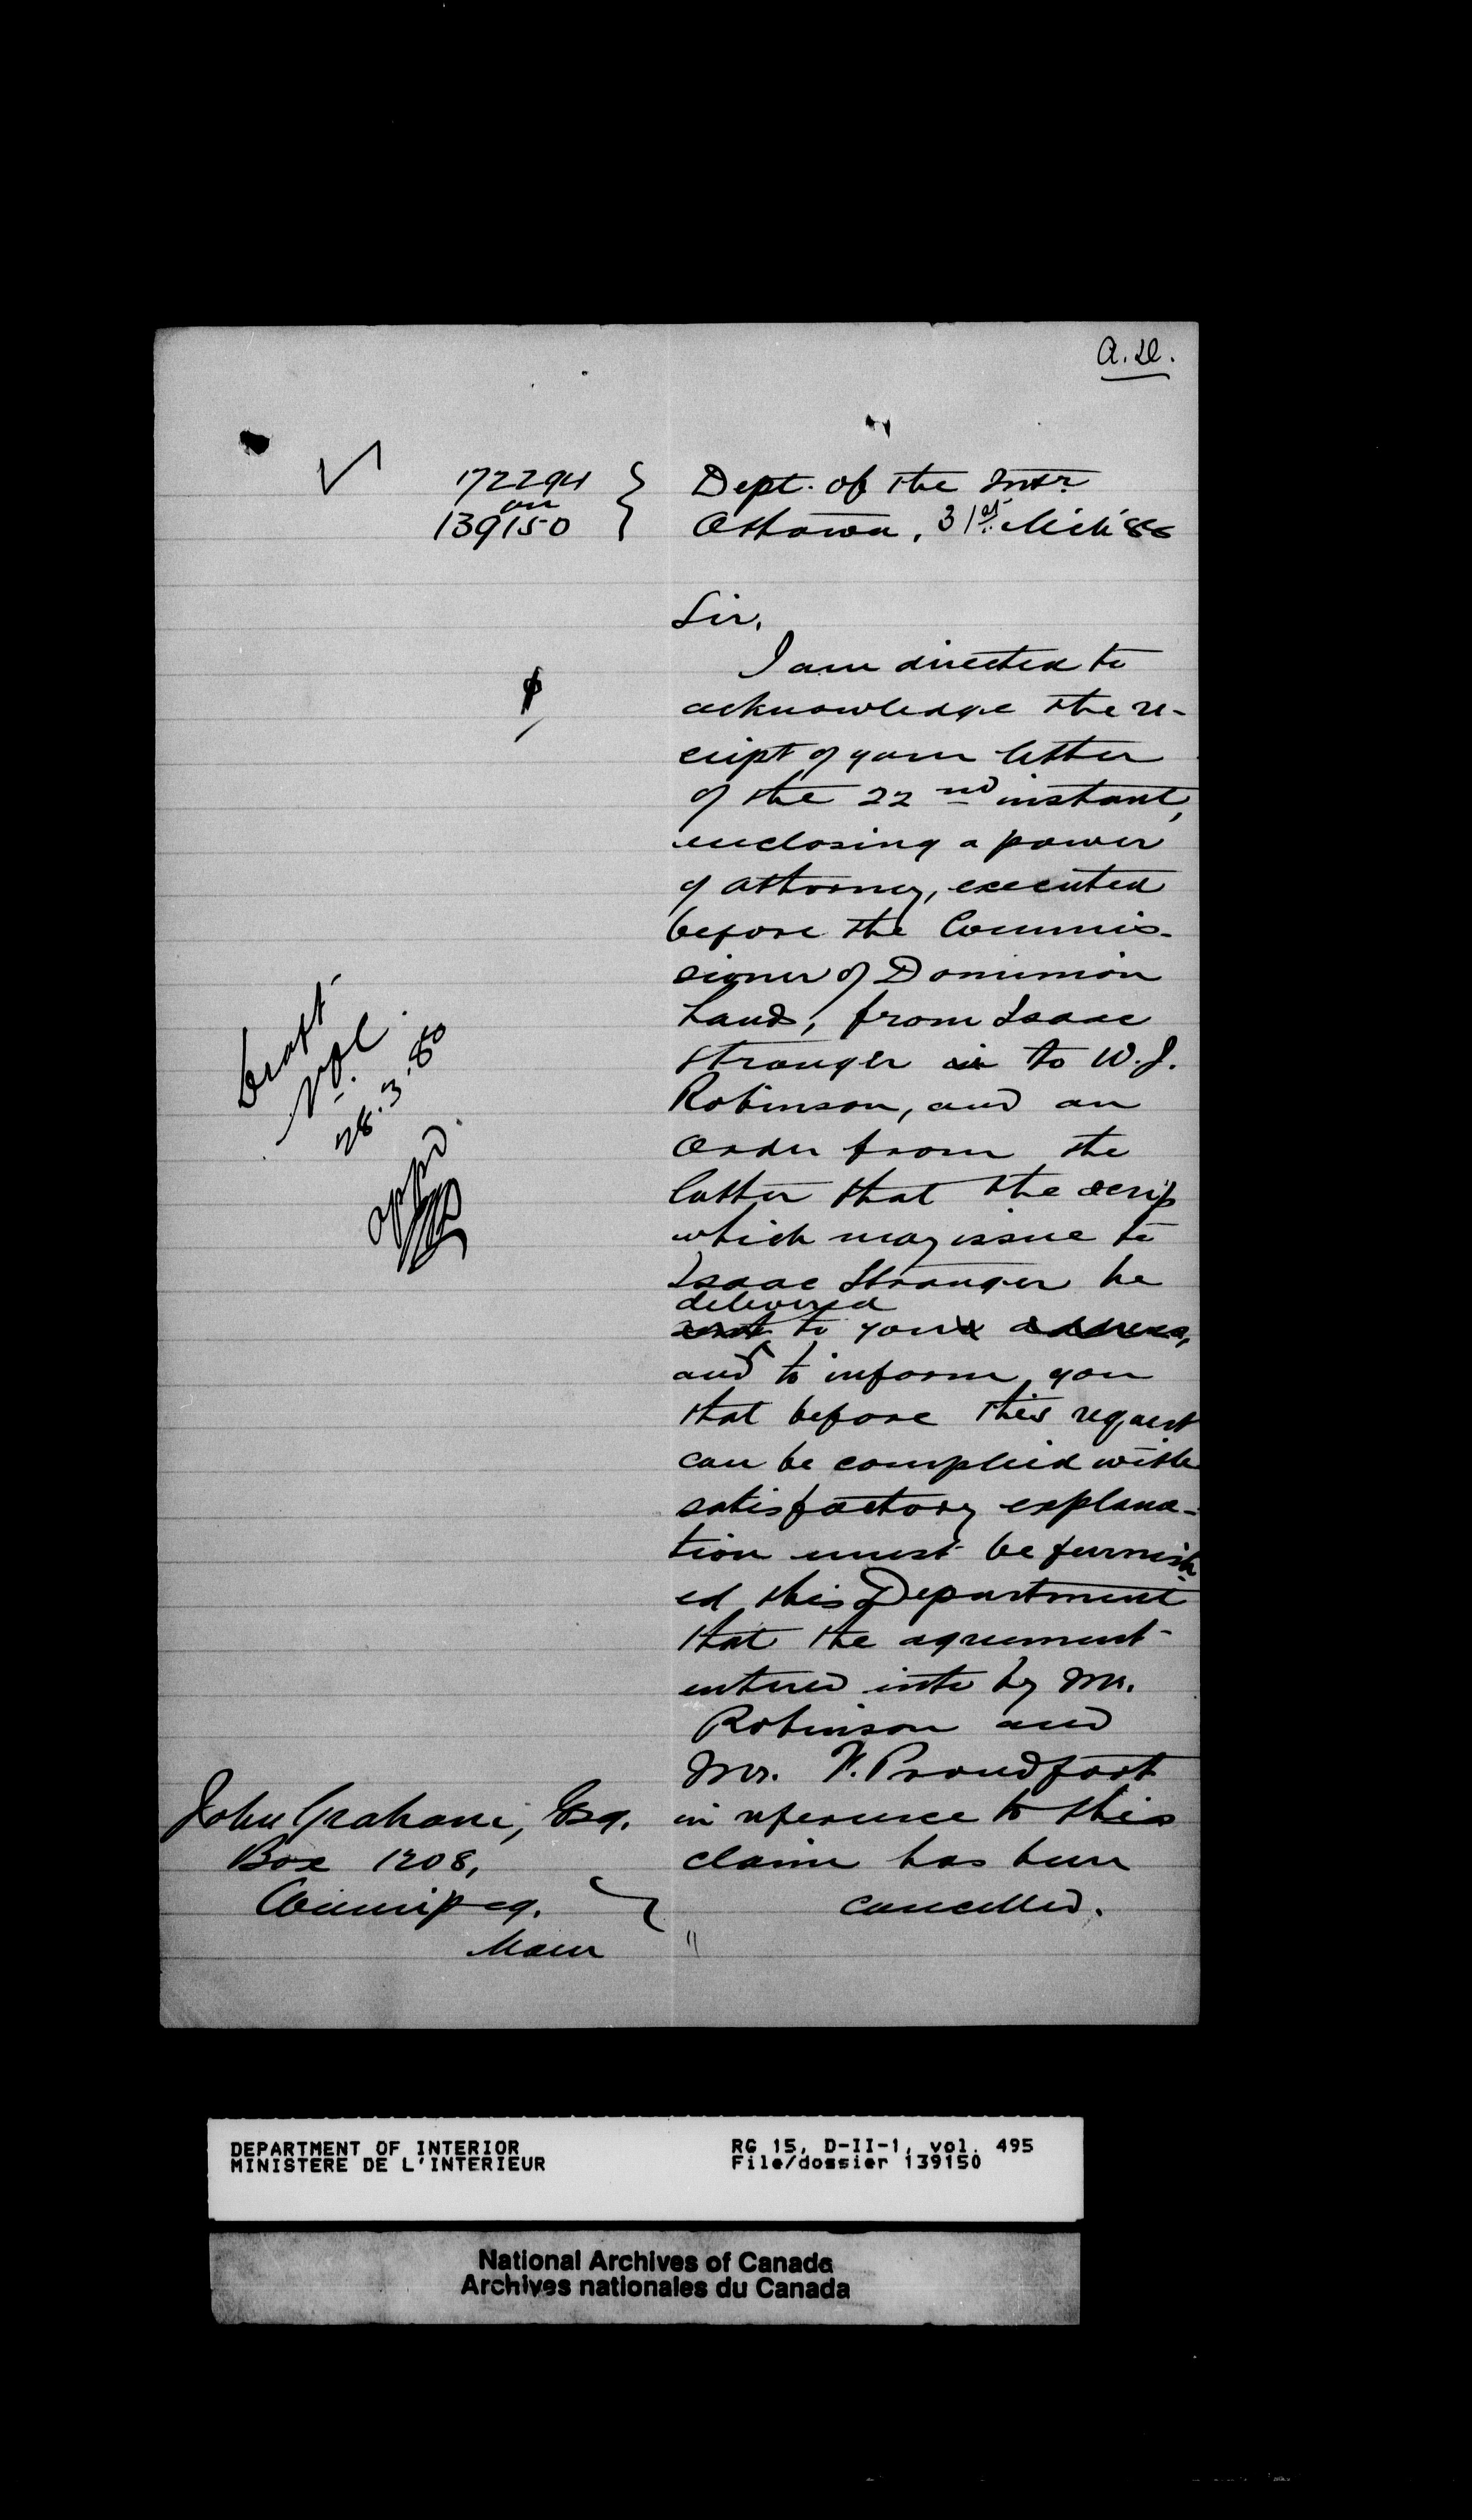 A.D.
172294
on
139150
Dept. of the Intr.
Ottawa, 31st. Mch '86
Sir,
I am directed to
acknowledge the re-
ceipt of your letter
of the 22nd instant,
enclosing a power
of attorney, executed
before the Commis-
sioner of Dominion
Lands, from Isaac
Stranger to W.J.
Robinson, and an
order from the
latter that the scrip
which may issue to
Isaac Stranger be
delivered
sent to your address,
and to inform you
that before this request
can be complied with
satisfactory explana-
tion must be furnish-
ed this Department
that the agreement
entered into by Mr.
Robinson and
Mr. F. Proudfoot
in reference to this
claim has been
cancelled.
Draft
28.3.86
appd.
John Graham, Esq.
Box 1208,
Winnipeg.
Man
DEPARTMENT OF INTERIOR
MINISTERE DE L'INTERIEUR
RG 15, D-II-1, vol. 495
File/dossier 139150
National Archives of Canada
Archives nationales du Canada